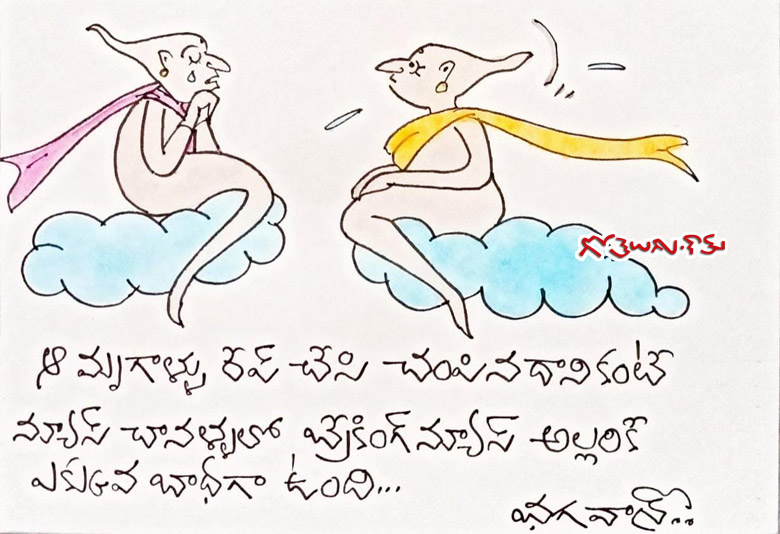 గోతెలుగు.కామ్
ఆ మృగాళ్ళు రేప్ చేసి చంపినదానికంటే
న్యూస్ చానళ్ళలో బ్రేకింగ్ న్యూస్ అల్లరికే
ఎక్కువ బాధగా ఉంది...
భగవాన్..